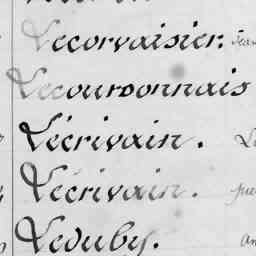 Lecorvaisier.
Lecourdonnais
Lécrivain.
Lécrivain.
Leduby.